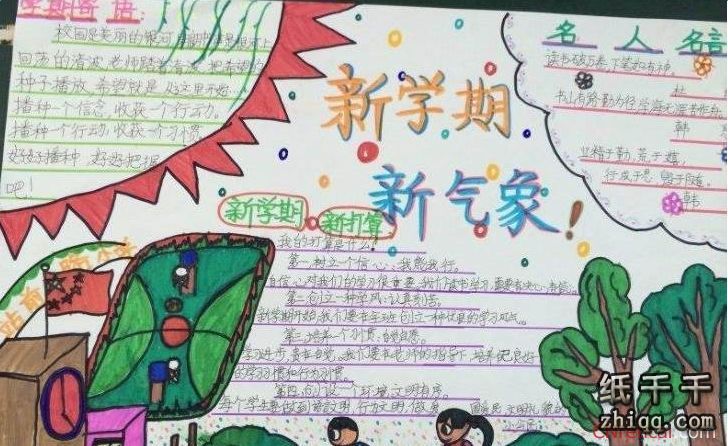 学期寄语
校园是美丽的银河
回荡的清波,老师踏着清波,把希望的
种子播放,希望就是
播种一个信念,收获一个行动。
播种一个行动,收获一个习惯
好好播种,好好把握
吧!
新学期
新气象!
名人名言
读书破万卷,下笔如有神。
杜
书山有路勤为径,学海无涯苦作舟
韩
业精于勤,荒于嬉,
行成于思,毁于随。
韩
新学期 新打算
我的打算是什么?
第一树立一个信心:我能我行。
自信心对我们的学习很重要
第二创立一种学风:认真刻苦。
新学期开始,我们要在年班创立一种优良的学习风气。
第三培养一个习惯:自律自覺。
学习进步,贵在自觉。我们要在老师的指导下,培养
的学习惯和行为习惯。
第四创设一个环境:文明有序。
每个学生要做到语言文明,行为文明,做
纸千千
zhiqq.com